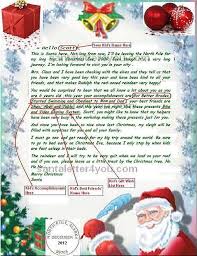 Hello Scott,
Your Kid's Name Here
This is Santa here. Not long from now, I'll be leaving the North Pole for
my long trip on Christmas Eve, 2012. Even though it's a very long
journey, I'm looking forward to visit you in your city.
Mrs. Claus and I have been checking with the elves and they tell us that
you have been very good this year and have been kind to all your
friends, and that makes Rudolph the red nosed reindeer very happy!
You would be surprised to hear that we all know a lot about you as you
are years old, this year, your accomplishments are Better Grades,
Started Swimming and Obedient to Mom and Dad your best friends are
and this year you might like these presents
and Video Games. Santa's
have been very busy in the workshop making these presents just for you.
And since you have been so nice since last Christmas, my sleigh will be
filled with surprises for you and all of your family.
I must go now and get ready for my big trip around the world. Be sure
to go to bed early on Christmas Eve, because I only stop by when kids
are asleep in their beds.
The reindeer and I will try to be very quiet when we land on your roof
and if you can, please leave us a little treat by the Christmas tree.
Merry Christmas
Santa
santaletter4you.com
Kid's Accomplishments Here
Kid's Best Friends Name Here
Kid's Gift Wish List Here
DECEMBER
2012